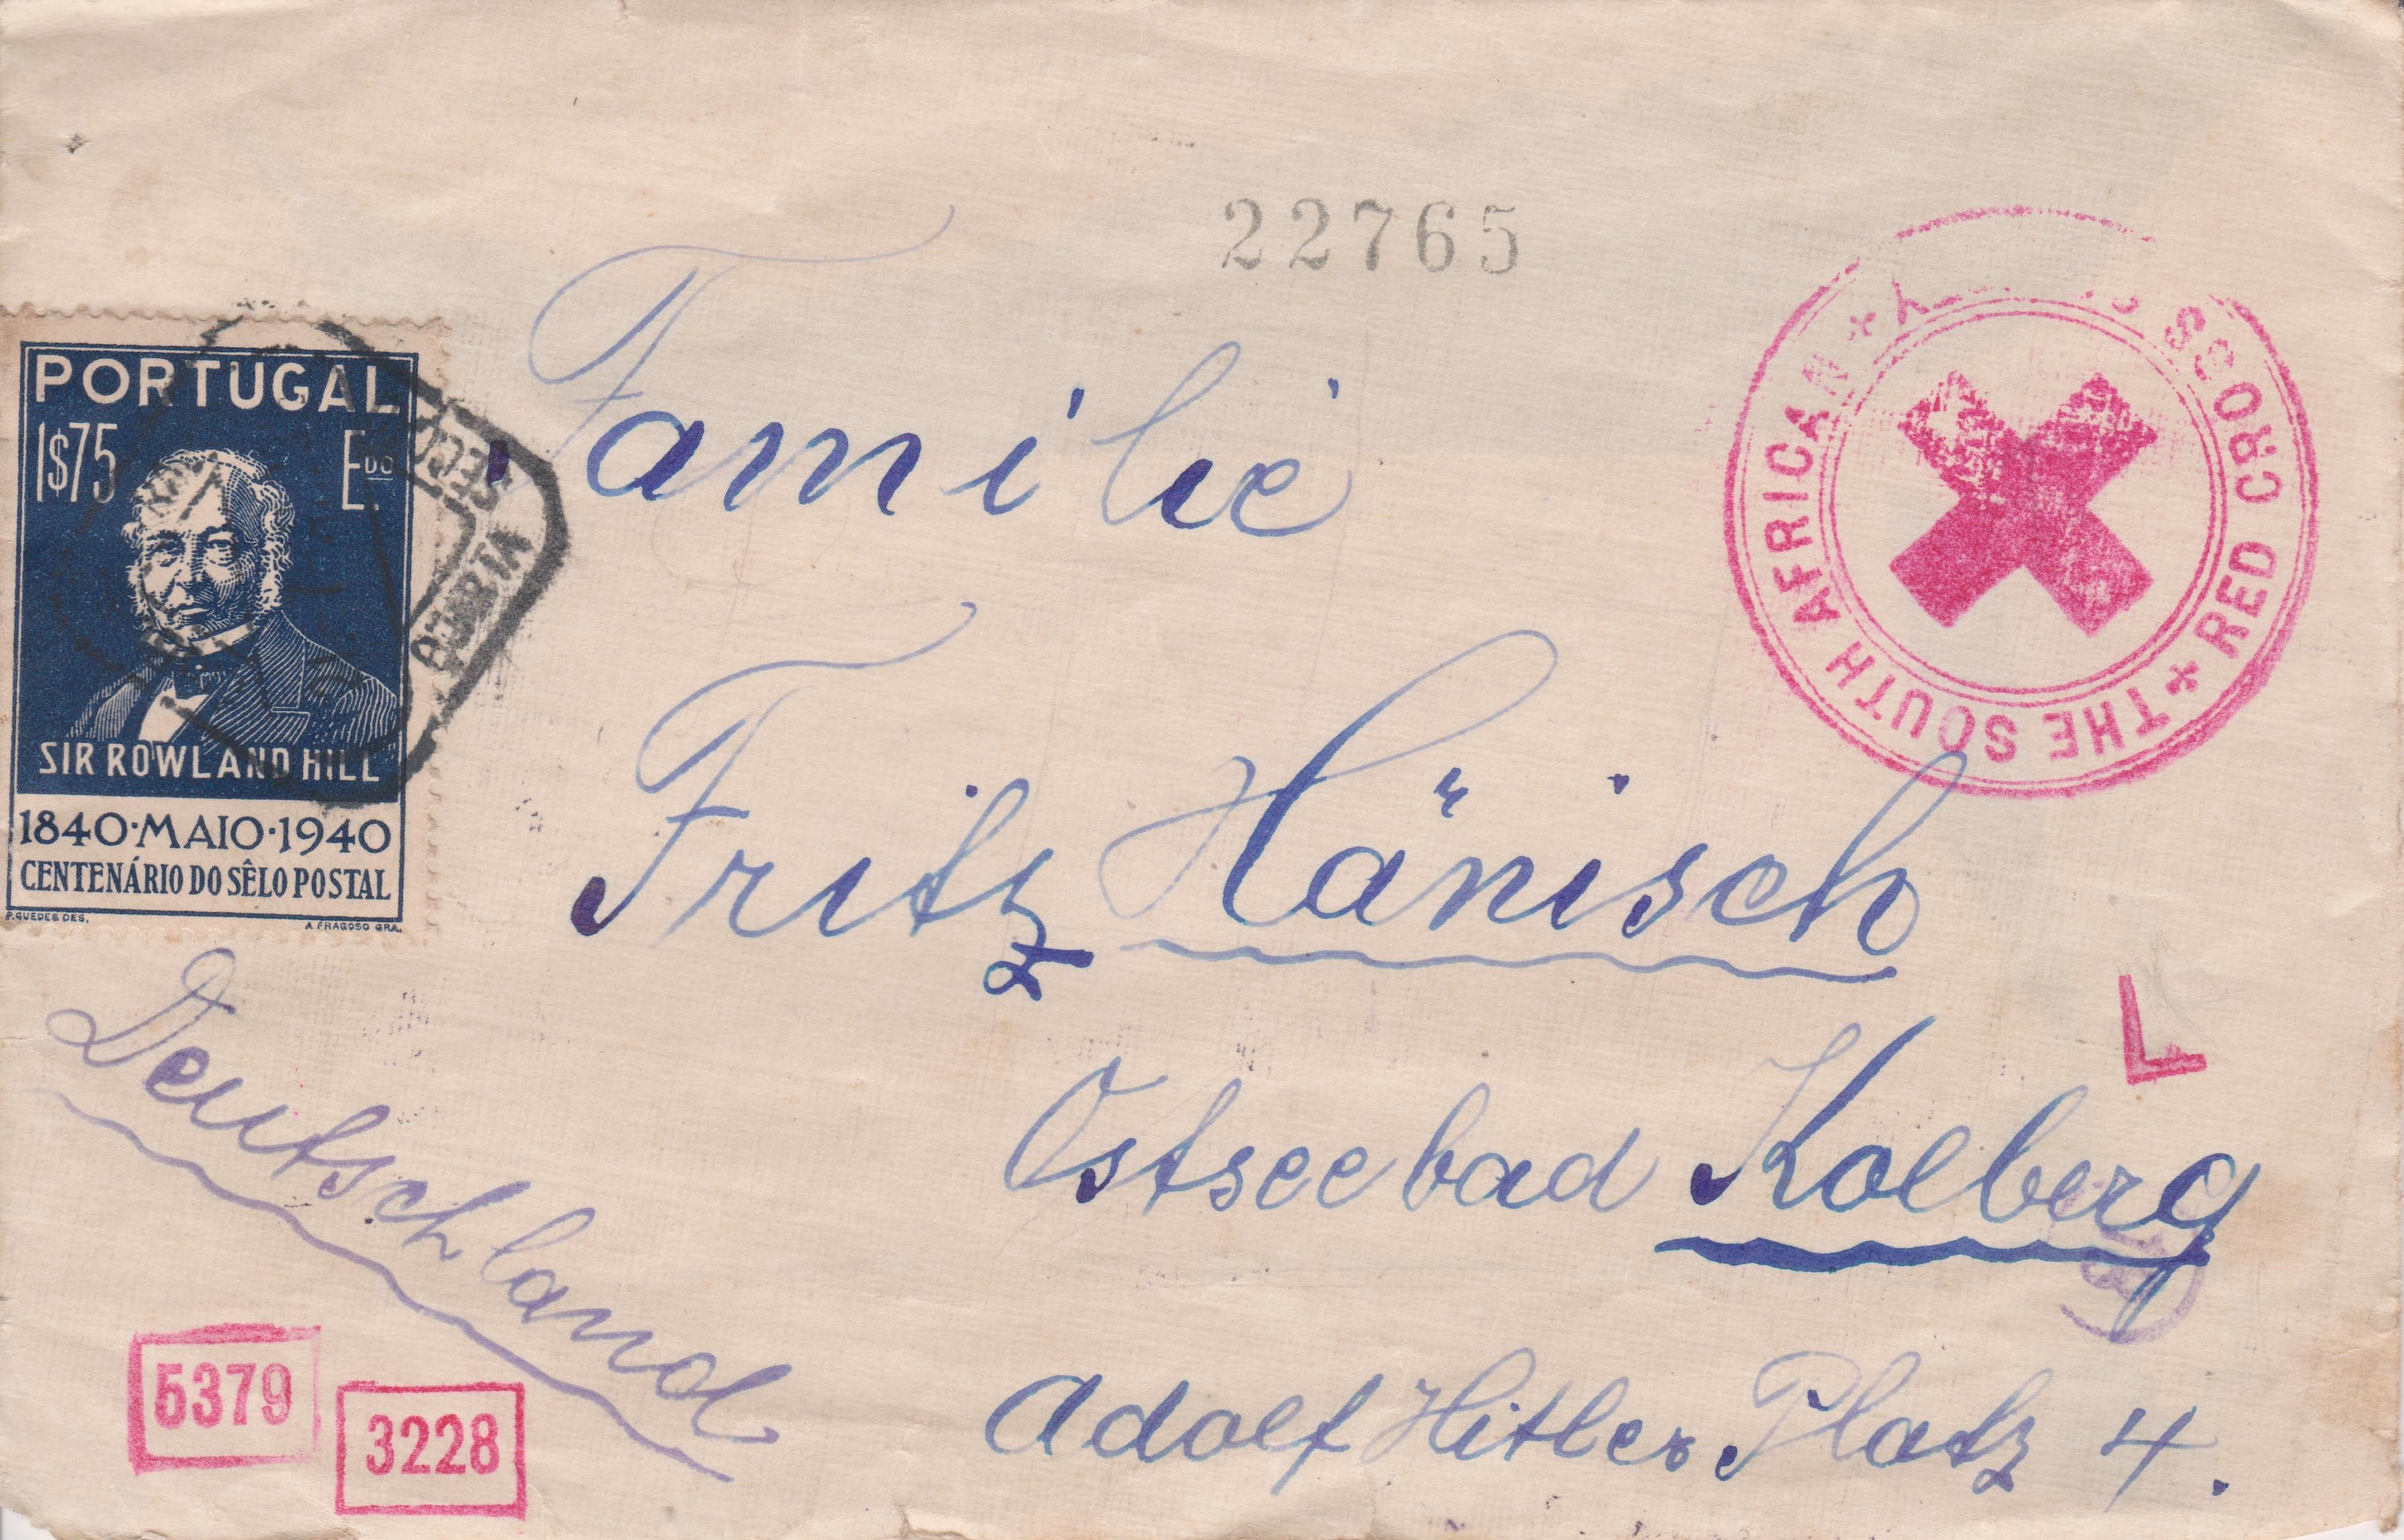 22765
PORTUGAL
1$75 EDO.
SIR ROWLAND HILL
1840·MAIO·1940
CENTENÁRIO DO SÊLO POSTAL
P. GUEDES DES. A. FRAGOSO GRA.
ABERTA
THE SOUTH AFRICAN
RED CROSS
Familie
Fritz Hänisch
Ostseebad Kolberg
Adolf Hitler Platz 4.
Deutschland
L
5379
3228